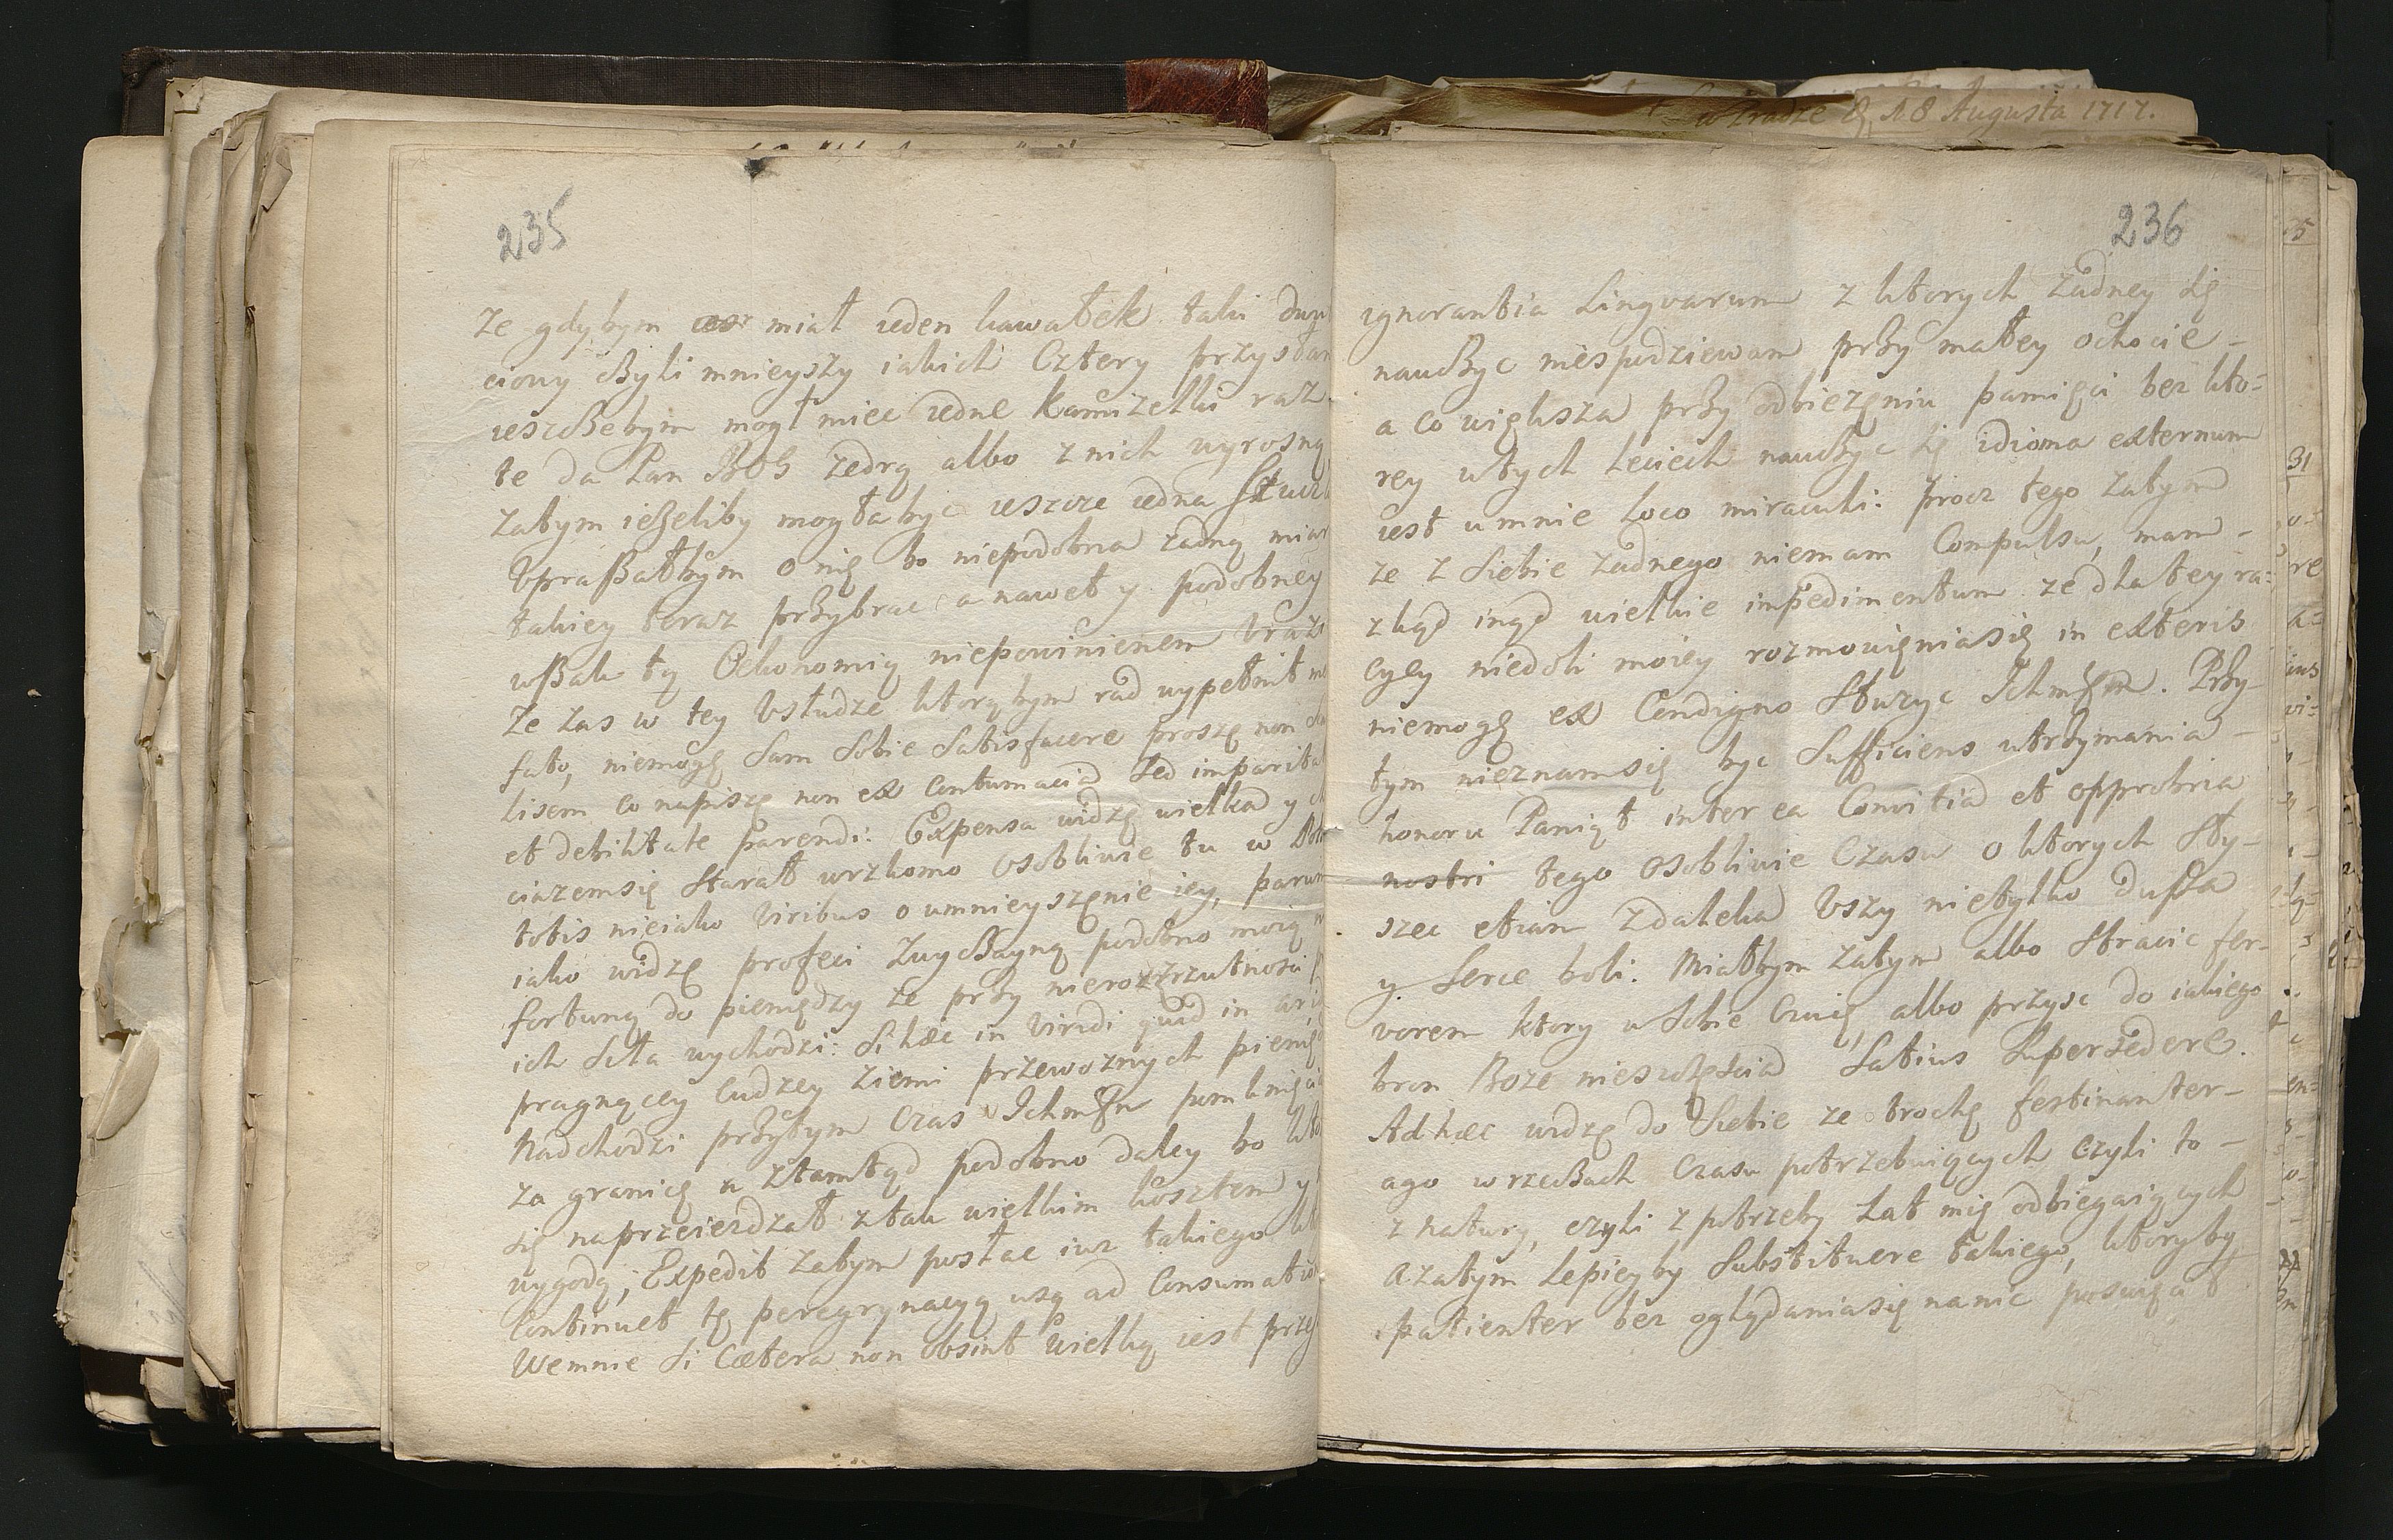 w Pradze d. 18 Augusta 1717.
235
Ze gdybym miał ieden kawałek taki
ciony cżyli mnieyszy iakich Cztery
ieszcżebym mogł miec iedne kamizelki raz
te da Pan BOG zedrą albo z nich wyrosną
Zatym ieżeliby mogła być ieszcze iedna
Vpraszałbym o nię bo niepodobna żadną
takiey teraz przybrac a nawet y podobney
wszak tą Oekonomią niepowinienem
Ze zas w tey Vsłudze ktorąbym rad wypełnił
fato, niemogę Sam Sobie Satisfacere proszę non
lisem co napiszę non ex Contumacia Sed
et debilitate parendi: Expensa widzę wielka y
ciazemsię Starał wrzkomo osobliwie tu w
totis nieiako Viribus o umnieyszęnie iey,
iako widzę profeci Zwyczayną podobno moią
fortuną do pieniędzy że przy nierozrzutnosci
ich Siła wychodzi: Si hæc in Viridi quid in
pragnącey Cudzey Ziemi przewoznych
Nadchodzi przytym Czas Ichmsćiow
za granicę a ztamtąd podobno daley bo
się naprzeieżdzał z tak wielkim kosztem y
wygodą; Expedit Zatym posłac iuz takiego
Continuet tę peregrynacyą usq ad
Wemnie Si Cætera non obsint wielką iest
236
ignorantia Lingvarum z ktorych żadney Się
nauczyc niespodziewam przy małey ochocie -
a co większa przy odbieżęniu pamięci bez kto=
rey wtych Leciech nauczyc Się idioma externum
iest umnie Loco miraculi: procz tego Zatym
ze z Siebie żadnego niemam Compulsu, mam -
zkąd inąd wielkie impedimentum ze dla tey ra=
cyey niedoli moiey rozmowięniasię in exteris
niemogę ex Condigno Służyc Ichmsćiom. Przy-
tym nieznamsię byc Sufficiens utrzymania -
honoru Paniąt inter ea Convitia et opprobria
nostri tego osobliwie Czasu o ktorych Sły-
szec etiam Zdaleka Vszy nietylko dusza
y Serce boli. Miałbym Zatym albo Stracic fer-
vorem ktory w Sobie Czuię, albo przysc do iakiego
bron Boze nieszcżęścia Satius Supersedere.
Ad hæc widzę do Siebie ze trochę festinanter-
ago w rzeczach Czasu potrzebuiących czyli to -
z natury, czyli z potrzeby Lat mię odbiegaiących
a zatym Lepieyby Substituere takiego, ktoryby
patienter bez oglądaniasię na nic